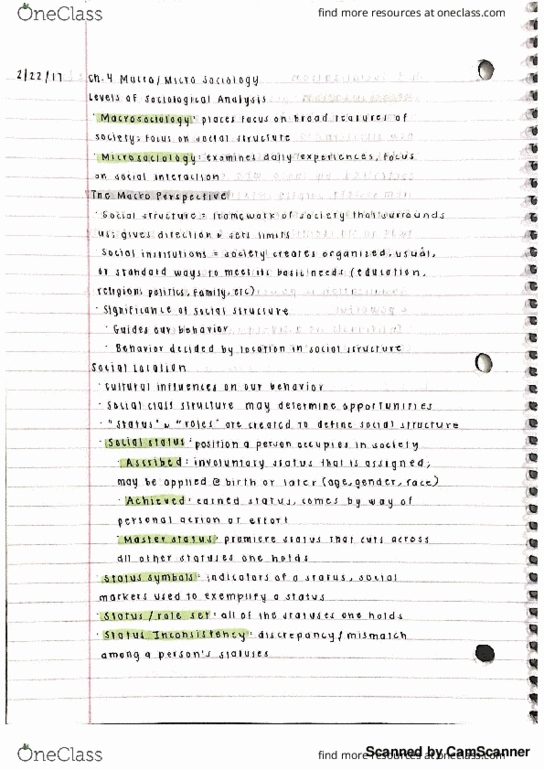 OneClass find more resources at oneclass.com
2/22/17 Ch. 4 Macro/Micro Sociology
Levels of Sociological Analysis
· Macrosociology: places focus on broad features of
society; focus on social structure
· Microsociology: examines daily experiences, focus
on social interaction
The Macro Perspective
· Social structure = framework of society that surrounds
us; gives direction & sets limits
· Social institutions = society creates organized, usual,
or standard ways to meet its basic needs (education,
religion, politics, family, etc)
· Significance of social structure
· Guides our behavior
· Behavior decided by location in social structure
Social Location
· Cultural influences on our behavior
· Social class structure may determine opportunities
· "Status" & "roles" are created to define social structure
· Social status: position a person occupies in society
· Ascribed: involuntary status that is assigned;
may be applied @ birth or later (age, gender, race)
· Achieved: earned status, comes by way of
personal action or effort
· Master status: premiere status that cuts across
all other statuses one holds
· Status symbols: indicators of a status, social
markers used to exemplify a status
· Status/role set: all of the statuses one holds
· Status Inconsistency: discrepancy/mismatch
among a person's statuses
OneClass find more resources at oneclass.com
Scanned by CamScanner